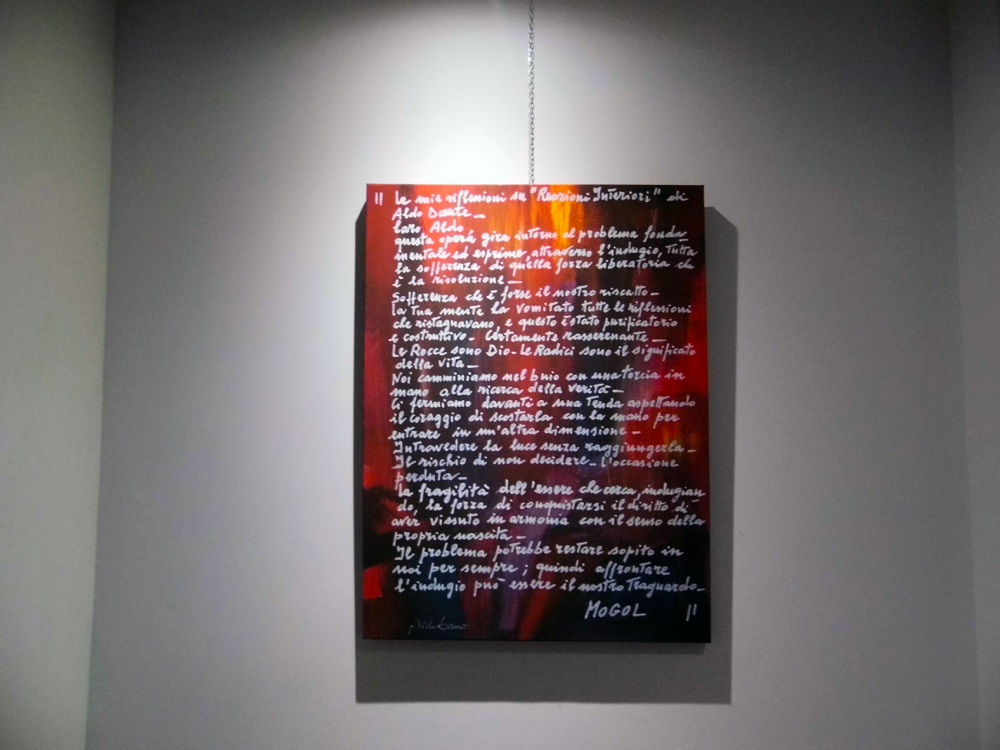 " Le mie riflessioni su "Reazioni Interiori" di
Aldo
Caro Aldo
questa opera gira intorno al problema fonda_
mentale ed esprime, attraverso l'indugio, tutta
la sofferenza di quella forza liberatoria che
è la risoluzione_
Sofferenza che è forse il nostro riscatto_
La tua mente ha vomitato tutte le riflessioni
che ristagnavano, e questo è stato purificatorio
e costruttivo_ Certamente rasserenante_
Le Rocce sono Dio_ Le Radici sono il significato
della vita_
Noi camminiamo nel buio con una torcia in
mano alla ricerca della verità_
Ci fermiamo davanti a una Tenda aspettando
il coraggio di scostarla con la mano per
entrare in un'altra dimensione_
Intravedere la luce senza raggiungerla_
Il rischio di non decidere_ L'occasione
perduta_
La fragilità dell'essere che cerca, indugian
do, la forza di conquistarsi il diritto di
aver vissuto in armonia con il senso della
propria nascita_
Il problema potrebbe restare sopito in
noi per sempre ; quindi affrontare
l'indugio può essere il nostro Traguardo_
MOGOL "